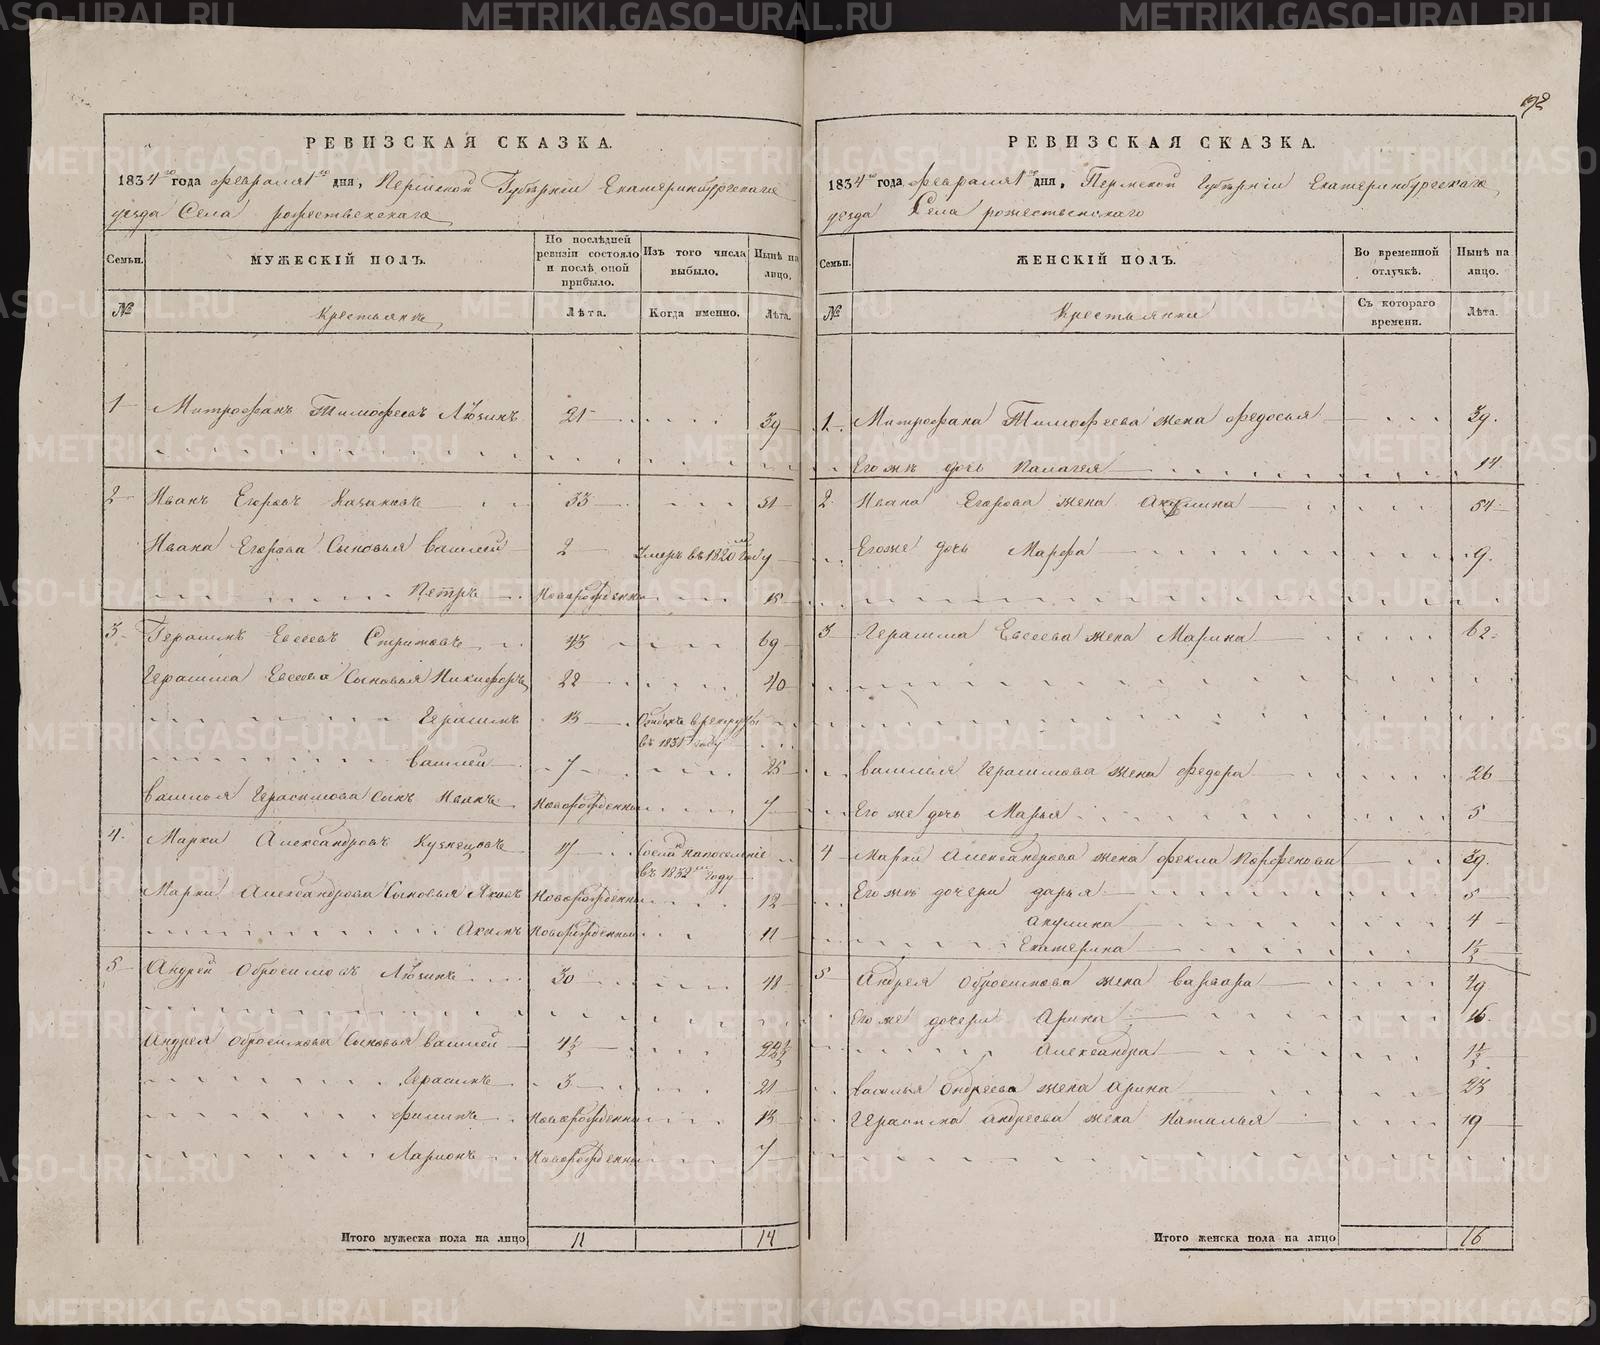 192
РЕВИЗСКАЯ СКАЗКА.
1834го года февраля 1го дня, Пермской Губернии Екатеринбургскаго
уезда Села рожественскаго
Семьи. МУЖЕСКІЙ ПОЛЪ. По послѣдней ревизіи состояло и послѣ оной прибыло. Изъ того числа выбыло. Нынѣ на лицо.
№ Крестьянъ Лѣта. Когда именно. Лѣта.
1 Митрофанъ Тимофеевъ Люзинъ 21 39
2 Иванъ Егоровъ Казаковъ 33 51
Ивана Егорова Сыновья Василей 2 Умеръ въ 1820м году
Петръ Новорожденны 15
3 Герасимъ Евсеевъ 43 69
Герасима Евсеева Сыновья Никифоръ 22 40
Герасимъ 13 Отданъ в рекруты
въ 1831 году
Василей 7 25
Василья Герасимова Сынъ Иванъ Новорожденны 7
4 Марки Александровъ Кузнецовъ 17 Сосланъ на поселеніе
въ 1832м году
Марки Александрова Сыновья Яковъ Новорожденны 12
Акимъ Новорожденны 11
5 Андрей Обросимовъ Люзинъ 30 48
Андрея Обросимова Сыновья Василей 4½
Герасимъ 3 21
Филипъ Новорожденны 13
Ларионъ Новорожденны 7
Итого мужеска пола на лицо 11 14
РЕВИЗСКАЯ СКАЗКА.
1834го года февраля 1го дня, Пермской Губерніи Екатеринбургскаго
уезда Села рожественскаго
Семьи. ЖЕНСКІЙ ПОЛЪ. Во временной отлучкѣ. Нынѣ на лицо.
№ Крестьянки Съ котораго времени. Лѣта.
1 Митрофана Тимофеева жена федосья 39
Егожъ дочь Палагея 14
2 Ивана Егорова жена Акулина 54
Егоже дочь Марфа 9
3 Герасима Евсеева жена Марина 62
Василья Герасимова жена Федора 26
Его же дочь Марья 5
4 Марки Александрова жена фекла Парфенова 39
Егожъ дочери дарья 5
акулина 4
Екатерина 1½
5 Андрея Обросимова жена варвара 49
Егоже дочери Арина 16
Александра 1½
василья Андреева жена арина 23
Герасима андреева жена Наталья 19
Итого женска пола на лицо 16
METRIKI.GASO-URAL.RU